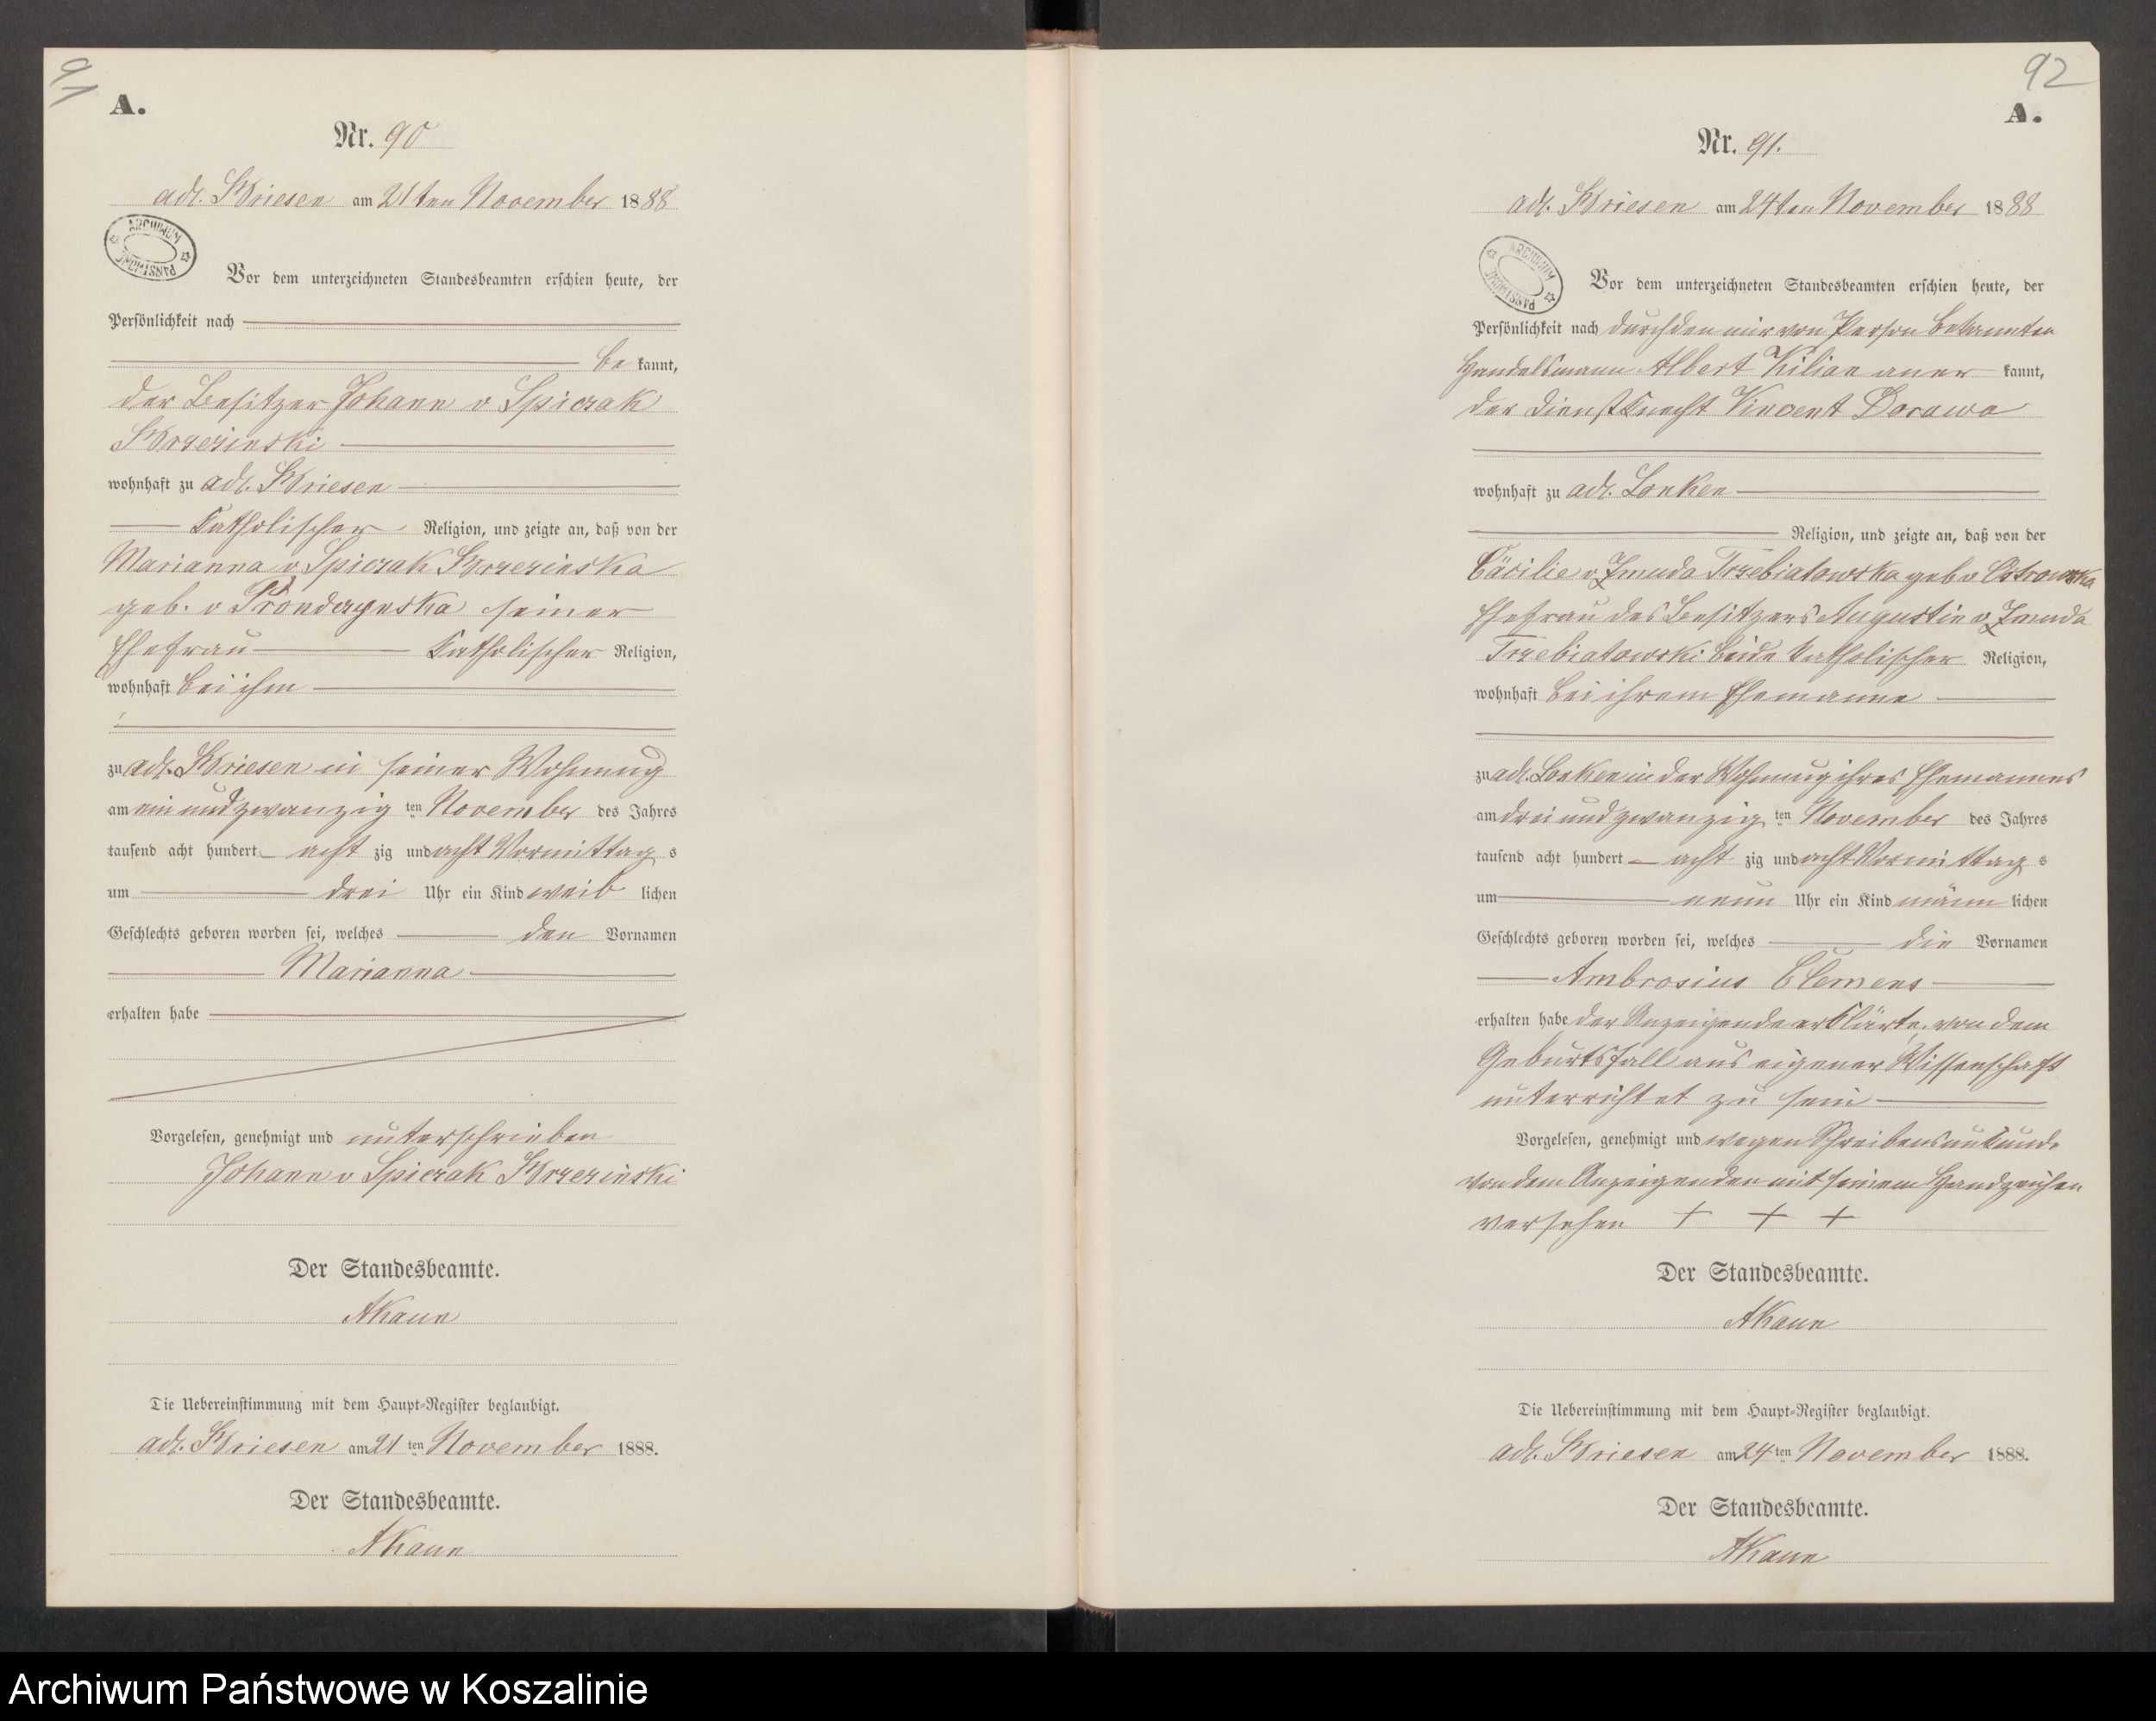 91
A.
Nr. 90
adl. Briesen am 21ten November 1888
ARCHIWUM PAŃSTWOWE
Vor dem unterzeichneten Standesbeamten erschien heute, der
Persönlichkeit nach
be kannt,
der Besitzer Johann v Spiczak
Brzezinski
wohnhaft zu adl. Briesen
katholischer Religion, und zeigte an, daß von der
Marianna v Spiczak Brzezinska
geb. v Prondzynska seiner
Ehefrau katholischer Religion,
wohnhaft bei ihm
zu adl. Briesen in seiner Wohnung
am ein und zwanzig ten November des Jahres
tausend acht hundert acht zig und acht Vormittag s
um drei Uhr ein Kind weib lichen
Geschlechts geboren worden sei, welches den Vornamen
Marianna
erhalten habe
Vorgelesen, genehmigt und unterschrieben
Johann v Spiczak Brzezinski
Der Standesbeamte.
AKaun
Die Uebereinstimmung mit dem Haupt-Register beglaubigt.
adl. Briesen am 21 ten November 1888.
Der Standesbeamte.
AKaun
92
A.
Nr. 91.
adl. Briesen am 24ten November 1888
ARCHIWUM PAŃSTWOWE
Vor dem unterzeichneten Standesbeamten erschien heute, der
Persönlichkeit nach durch den mir von Person bekannten
Handelsmann Albert Kilian aner kannt,
der Dienstknecht Vincent Dorawa
wohnhaft zu adl. Lonken
Religion, und zeigte an, daß von der
Cäcilie v Zmuda Trzebiatowska geb v Ostrowska
Ehefrau des Besitzers Augustin v Zmuda
Trzebiatowski beide katholischer Religion,
wohnhaft bei ihrem Ehemanne
zu adl. Lonken in der Wohnung ihres Ehemannes
am drei und zwanzig ten November des Jahres
tausend acht hundert acht zig und acht Vormittag s
um neun Uhr ein Kind männ lichen
Geschlechts geboren worden sei, welches die Vornamen
Ambrosius Clemens
erhalten habe der Anzeigende erklärte, von dem
Geburtsfall aus eigener Wissenschaft
unterrichtet zu sein
Vorgelesen, genehmigt und wegen Schreibensunkunde
von dem Anzeigenden mit seinem Handzeichen
versehen + + +
Der Standesbeamte.
AKaun
Die Uebereinstimmung mit dem Haupt-Register beglaubigt.
adl. Briesen am 24 ten November 1888.
Der Standesbeamte.
AKaun
Archiwum Państwowe w Koszalinie